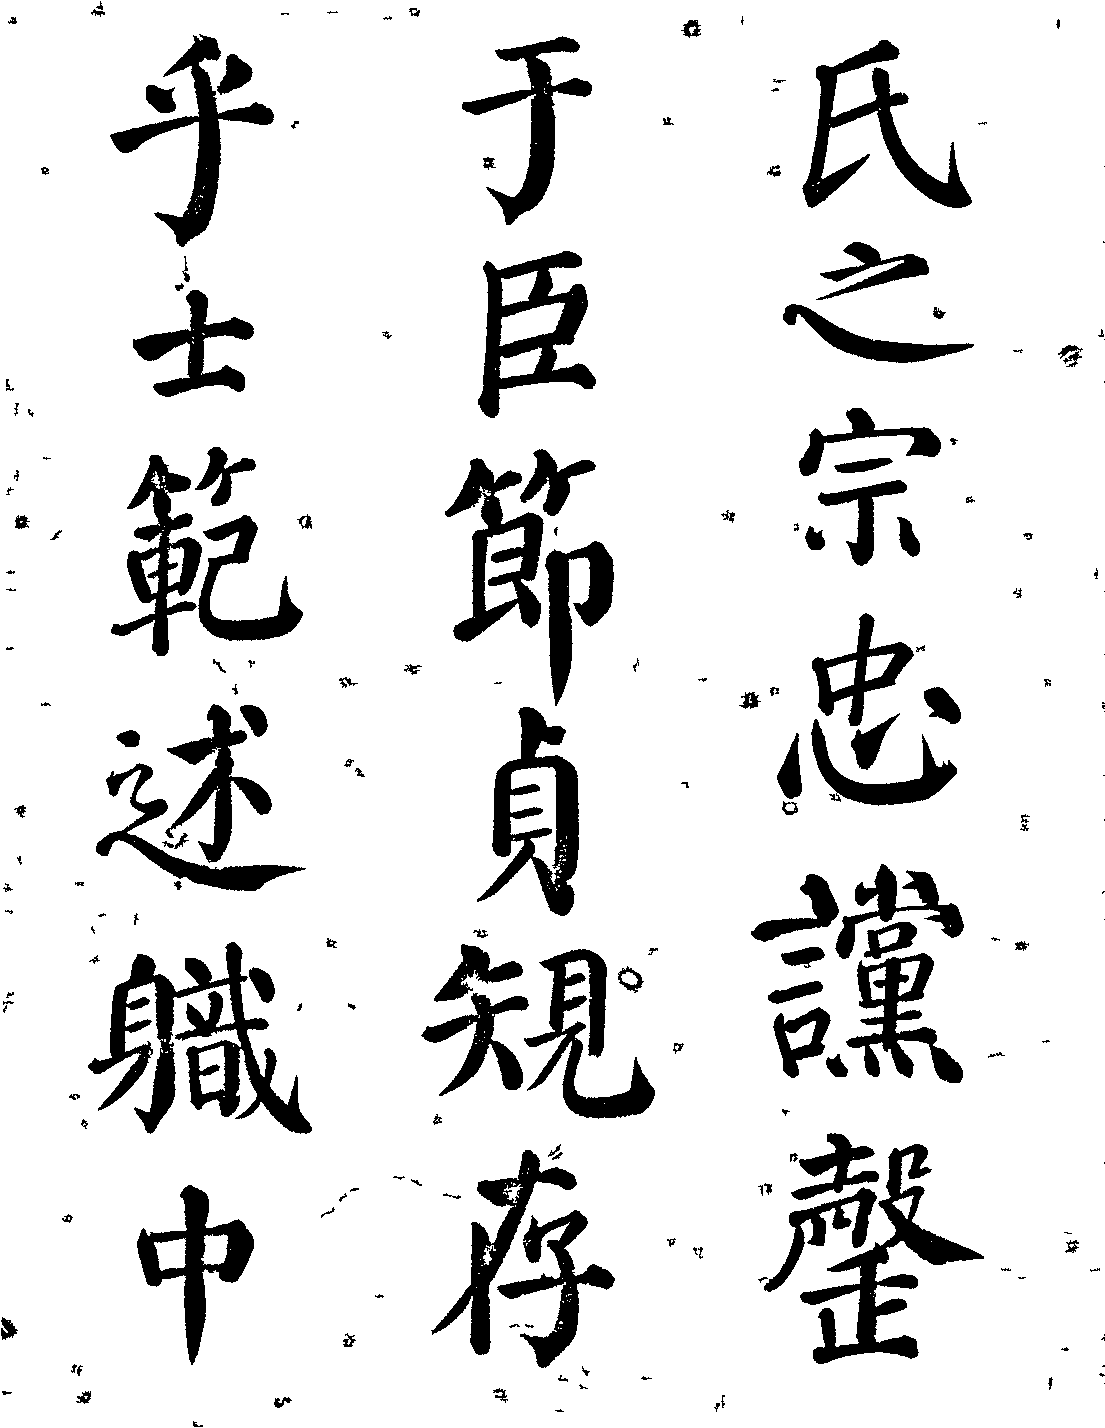 氏之宗忠讜罄
于臣節貞䂓存
乎士範述軄中